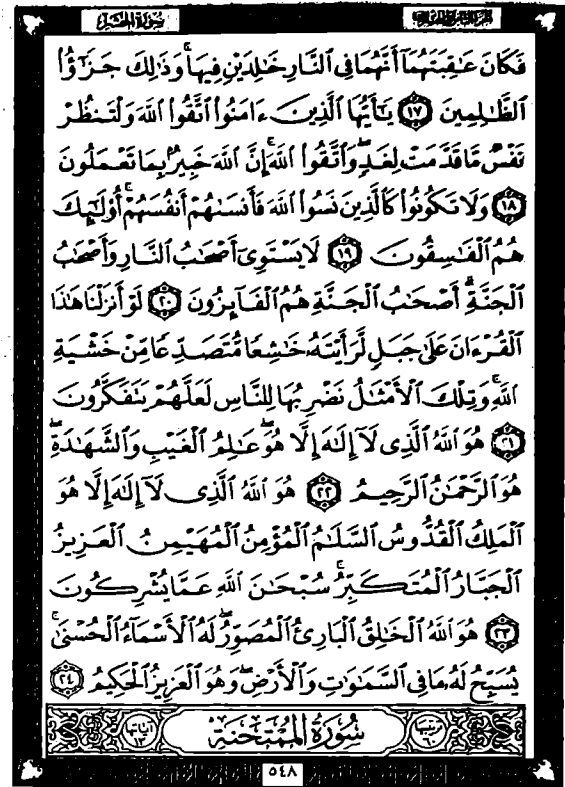 سورة الحشر الجزء الثامن والعشرون
فَكَانَ عَـٰقِبَتَهُمَآ أَنَّهُمَا فِى ٱلنَّارِ خَـٰلِدَيْنِ فِيهَا ۚ وَذَٰلِكَ جَزَٰٓؤُا۟
ٱلظَّـٰلِمِينَ ١٧ يَـٰٓأَيُّهَا ٱلَّذِينَ ءَامَنُوا۟ ٱتَّقُوا۟ ٱللَّهَ وَلْتَنظُرْ
نَفْسٌ مَّا قَدَّمَتْ لِغَدٍ ۖ وَٱتَّقُوا۟ ٱللَّهَ ۚ إِنَّ ٱللَّهَ خَبِيرٌۢ بِمَا تَعْمَلُونَ
١٨ وَلَا تَكُونُوا۟ كَٱلَّذِينَ نَسُوا۟ ٱللَّهَ فَأَنسَىٰهُمْ أَنفُسَهُمْ ۚ أُو۟لَـٰٓئِكَ
هُمُ ٱلْفَـٰسِقُونَ ١٩ لَا يَسْتَوِىٓ أَصْحَـٰبُ ٱلنَّارِ وَأَصْحَـٰبُ
ٱلْجَنَّةِ ۚ أَصْحَـٰبُ ٱلْجَنَّةِ هُمُ ٱلْفَآئِزُونَ ٢٠ لَوْ أَنزَلْنَا هَـٰذَا
ٱلْقُرْءَانَ عَلَىٰ جَبَلٍ لَّرَأَيْتَهُۥ خَـٰشِعًا مُّتَصَدِّعًا مِّنْ خَشْيَةِ
ٱللَّهِ ۚ وَتِلْكَ ٱلْأَمْثَـٰلُ نَضْرِبُهَا لِلنَّاسِ لَعَلَّهُمْ يَتَفَكَّرُونَ
٢١ هُوَ ٱللَّهُ ٱلَّذِى لَآ إِلَـٰهَ إِلَّا هُوَ ۖ عَـٰلِمُ ٱلْغَيْبِ وَٱلشَّهَـٰدَةِ ۖ
هُوَ ٱلرَّحْمَـٰنُ ٱلرَّحِيمُ ٢٢ هُوَ ٱللَّهُ ٱلَّذِى لَآ إِلَـٰهَ إِلَّا هُوَ
ٱلْمَلِكُ ٱلْقُدُّوسُ ٱلسَّلَـٰمُ ٱلْمُؤْمِنُ ٱلْمُهَيْمِنُ ٱلْعَزِيزُ
ٱلْجَبَّارُ ٱلْمُتَكَبِّرُ ۚ سُبْحَـٰنَ ٱللَّهِ عَمَّا يُشْرِكُونَ
٢٣ هُوَ ٱللَّهُ ٱلْخَـٰلِقُ ٱلْبَارِئُ ٱلْمُصَوِّرُ ۖ لَهُ ٱلْأَسْمَآءُ ٱلْحُسْنَىٰ ۚ
يُسَبِّحُ لَهُۥ مَا فِى ٱلسَّمَـٰوَٰتِ وَٱلْأَرْضِ ۖ وَهُوَ ٱلْعَزِيزُ ٱلْحَكِيمُ ٢٤
ترتيبها ٦٠ سُورَةُ المُمْتَحنَة آياتها ١٣
٥٤٨